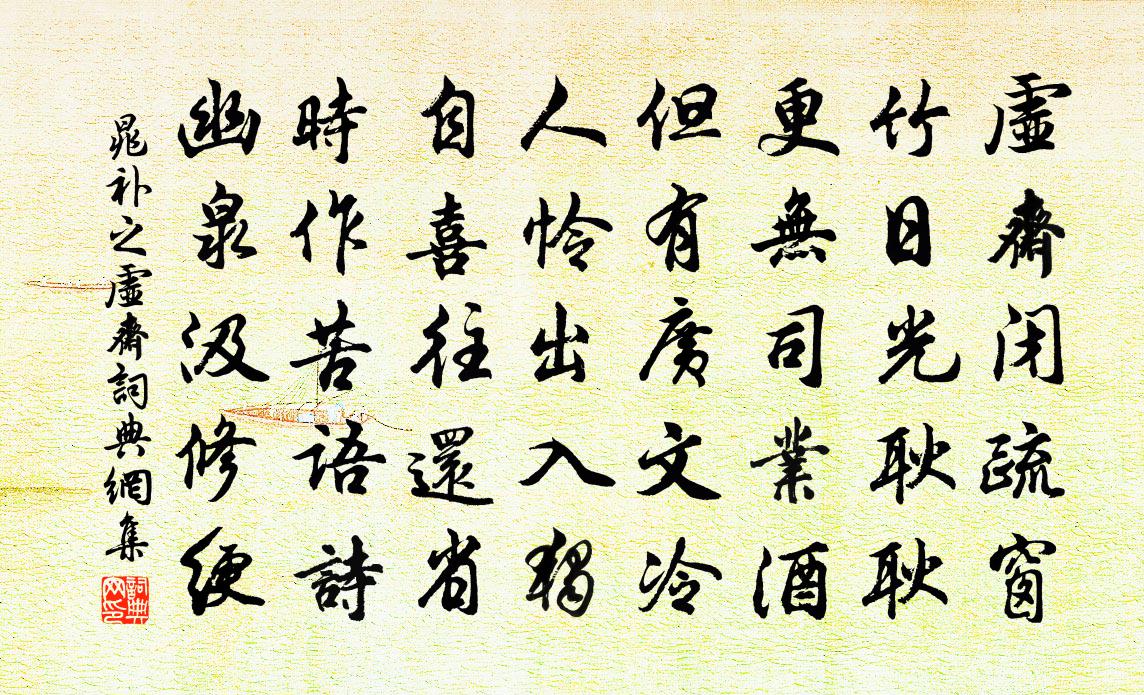 虛齋闭疏窗
竹日光耿耿
更無司業酒
但有廣文冷
人怜出入獨
自喜往還省
時作苦語詩
幽泉汲修綆
晁补之虛齋詞典網集
詞典網印